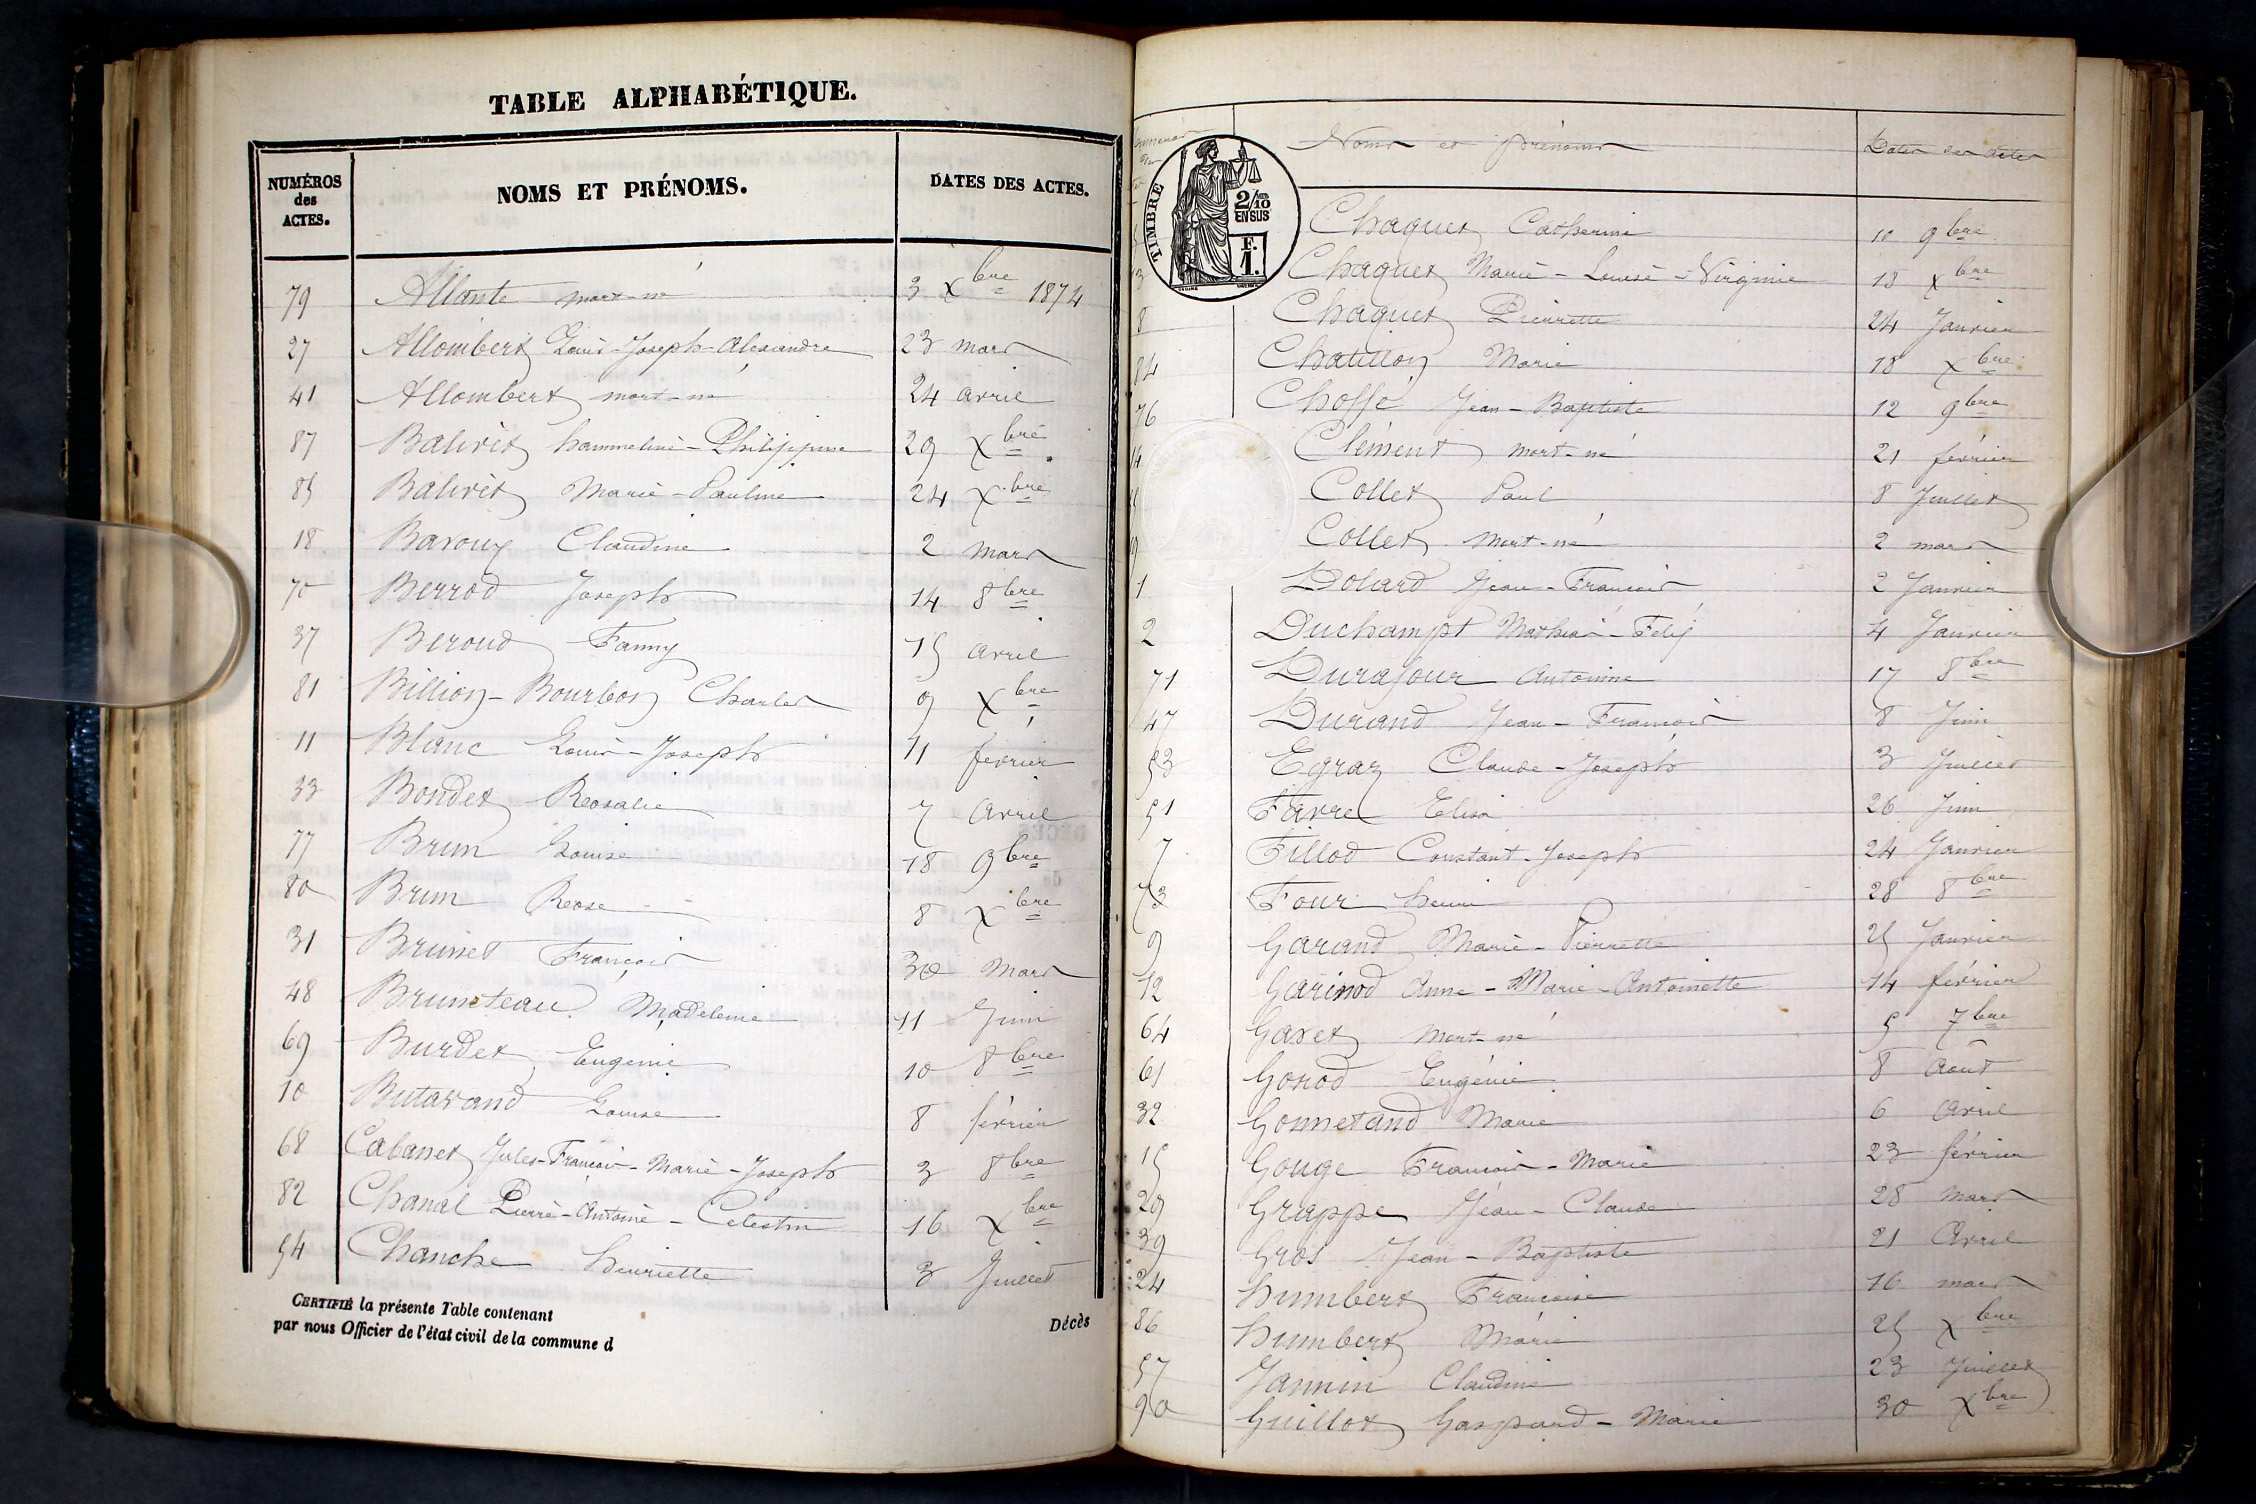 TABLE ALPHABÉTIQUE.
NUMÉROS des ACTES. NOMS ET PRÉNOMS. DATES DES ACTES.
79 Allante mort-né 3 Xbre 1874
27 Allombert Louis-Joseph-Alexandre 23 mars
41 Allombert mort-né 24 avril
87 Balivet hammeline-Philippine 29 Xbre
85 Balivet Marie-Pauline 24 Xbre
18 Baroux Claudine 2 mars
70 Berrod Joseph 14 8bre
37 Beroud Fanny 15 avril
81 Billion-Bourbon Charles 9 Xbre
11 Blanc Louis-Joseph 11 février
33 Bondet Rosalie 7 avril
77 Brun Louise 18 9bre
80 Brun Rose 8 Xbre
31 Brunet François 30 Mars
48 Bruneteau Madeleine 11 Juin
69 Burdet Eugénie 10 8bre
10 Butavand Louise 8 février
68 Cabanet Jules-François-Marie-Joseph 3 8bre
82 Chanal Pierre-Antoine-Celestin 16 Xbre
54 Chanche henriette 3 Juillet
CERTIFIÉ la présente Table contenant Décès
par nous Officier de l'état civil de la commune d
Noms et Prénoms Dates des actes
TIMBRE 2/10 EN SUS F. 1.
Chaquet Catherine 10 9bre
Chaquet Marie-Louise-Virginie 18 Xbre
8 Chaquet Pierrette 24 Janvier
84 Chatillon Marie 18 Xbre
76 Choffé Jean-Baptiste 12 9bre
14 Clément mort-né 21 février
Collet Paul 8 Juillet
Collet mort-né 2 mars
1 Dolard Jean-François 2 Janvier
2 Duchampt Mathias-Félix 4 Janvier
71 Durafour Antoinine 17 8bre
47 Durand Jean-François 8 Juin
53 Egraz Claude-Joseph 3 Juillet
51 Favre Elisa 26 Juin
7 Fillod Constant-Joseph 24 Janvier
73 Four henri 28 8bre
9 Garand Marie-Pierrette 25 Janvier
12 Garinod Anne-Marie-Antoinette 14 février
64 Gavet mort-né 5 7bre
61 Gonod Eugénie 8 Août
32 Gonnetand Marie 6 Avril
15 Gouge François-Marie 23 février
29 Grappe Jean-Claude 28 mars
39 Gros Jean-Baptiste 21 Avril
24 humbert Françoise 16 mars
86 humbert Marie 25 Xbre
57 Jannin Claudine 23 Juillet
90 Guillot Gaspard-Marie 30 Xbre